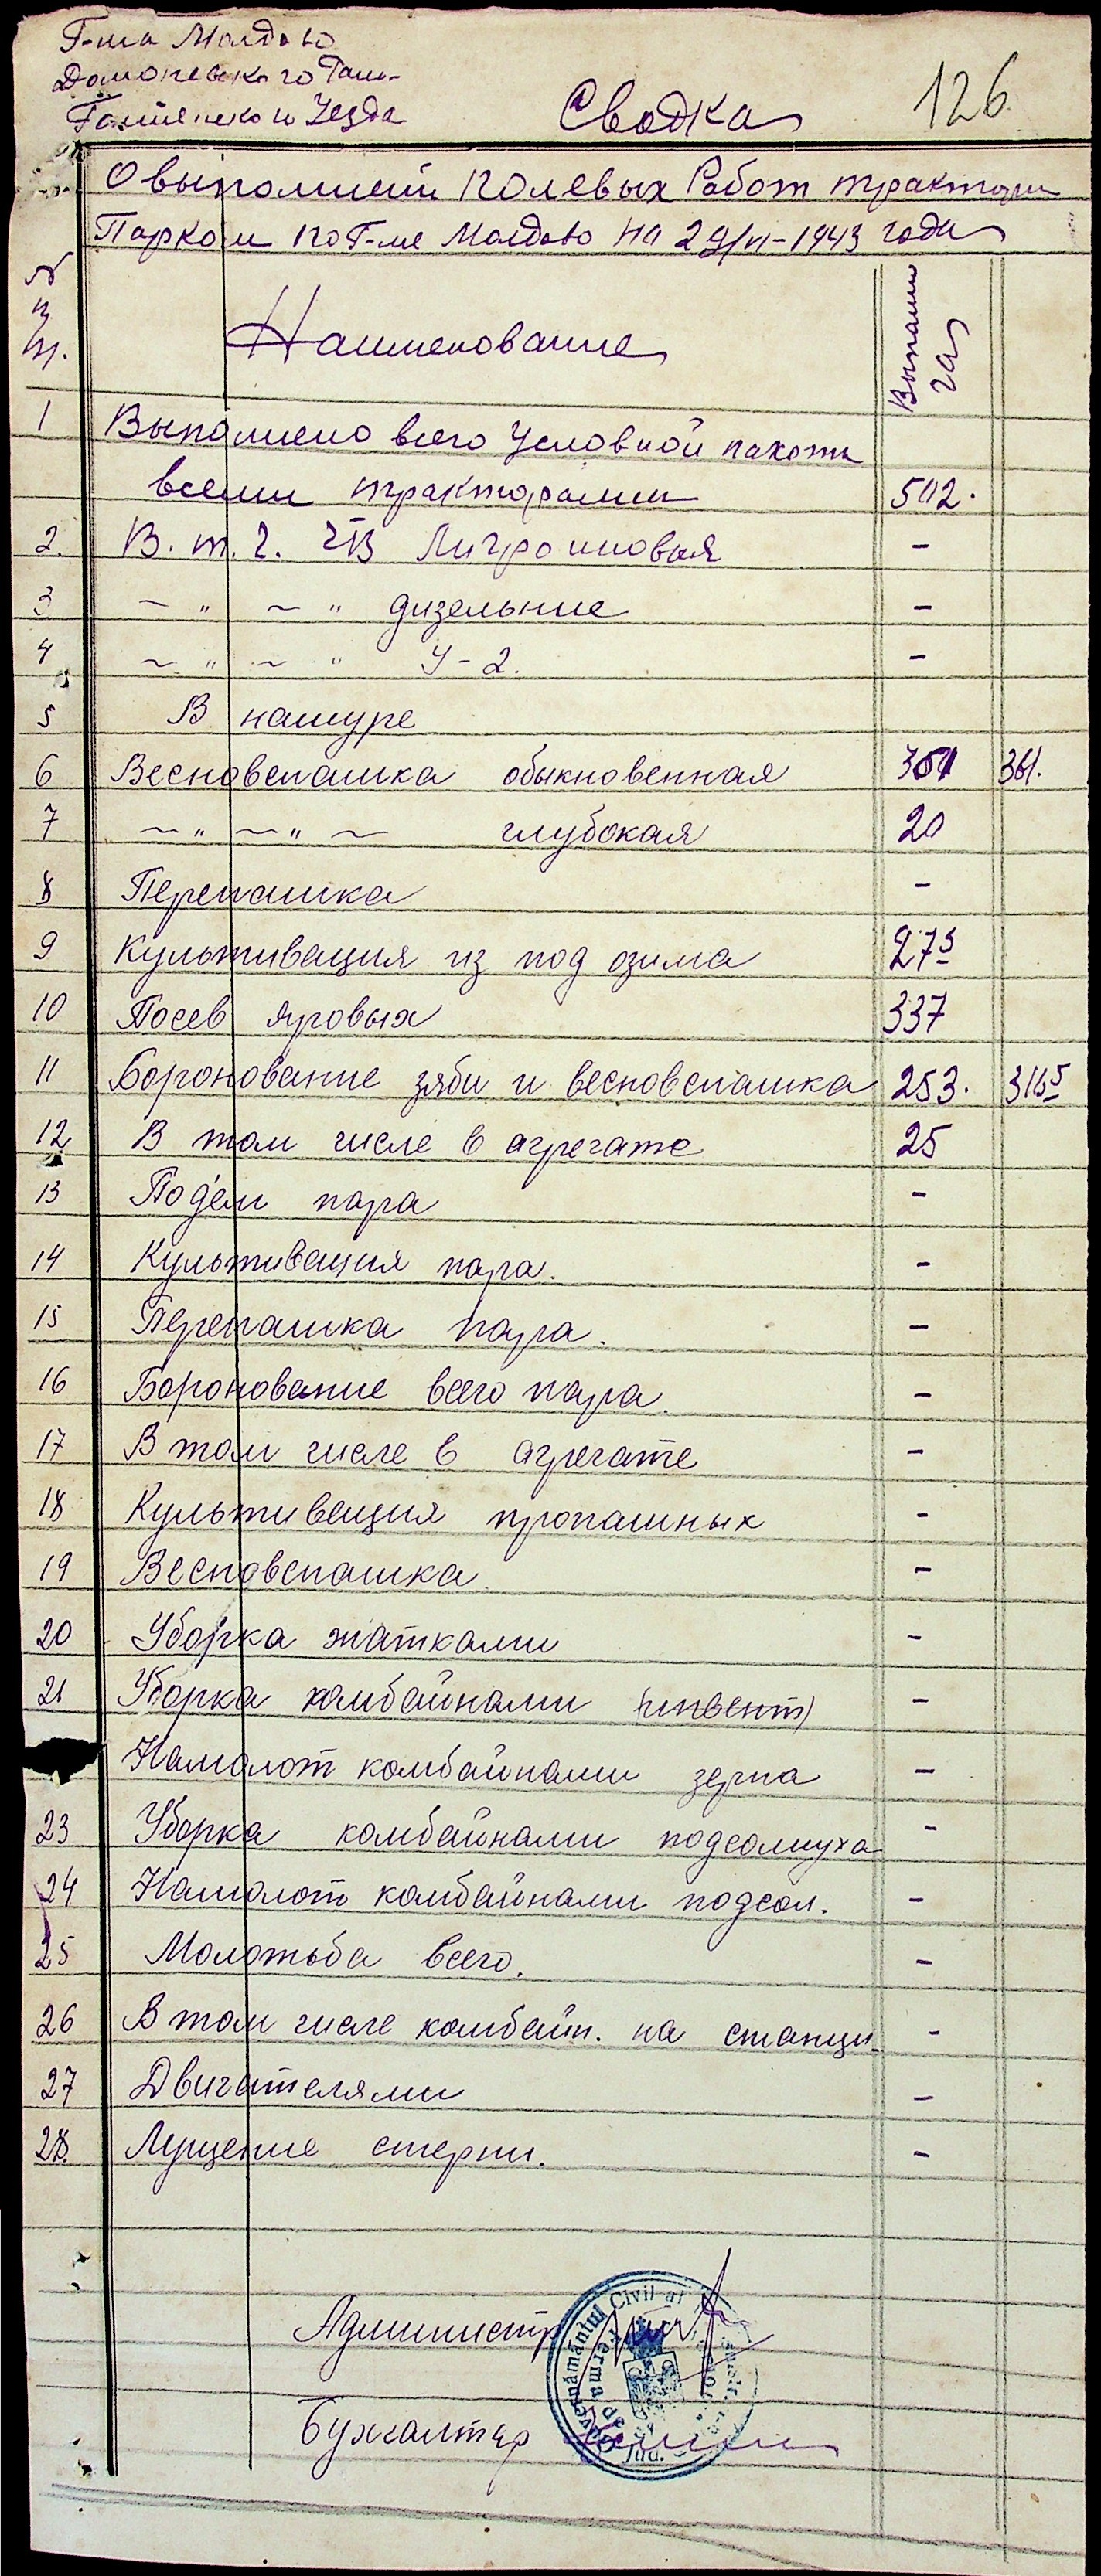 Г-ма Молдово
Доманевского Рай-
Голтянского Уезда
Сводка
126
О выполнении полевых Работ трактори
Парком по Г-ме Молдово на 29/VI-1943 года
№
п
п.
Наименование
Выполнили
га
1 Выполнено всего Условной пахоты
всеми тракторами 502.
2. В. т. ч. Лигроиновыя -
3 — " — " дизельние -
4 — " — " У-2. -
5 В натуре
6 Весновспашка обыкновенная 361.
7 — " — " — глубокая 20
8 Перепашка -
9 Культивация из под озима 27 5
10 Посев яровых 337
11 Боронование зяби и весновспашка 253. 316 5
12 В том числе в агрегате 25
13 Подем пара -
14 Культивация пара. -
15 Перепашка пара. -
16 Боронование всего пара. -
17 В том числе в агрегате -
18 Культивация пропашных -
19 Весновспашка -
20 Уборка жатками -
21 Уборка комбайнами -
Намолот комбайнами зерна -
23 Уборка комбайнами подсолнуха -
24 Намолот комбайнами подсол. -
25 Молотьба всего. -
26 В том числе комбайн. на станци. -
27 Двигателями -
28. Лущение стерни. -
Администр
Guvernământul Civil al
Ferma
Jud.
Бухгалтер